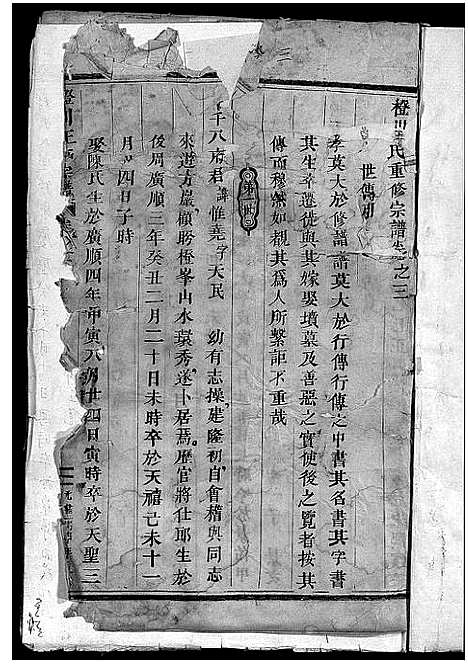 橙川王氏重修宗譜卷之三
世傳
孝莫大於修譜譜莫大於行傳行傳之中書其名書其字書
其生卒遷徙與其嫁娶墳墓及善惡之實使後之覽者按其
傳而穆然如覩其爲人所繫詎不重哉
第一世
千八府君諱惟堯字天民 幼有志操建隆初自會稽與同志
來遊方巖顧盼橙峯山水環秀遂卜居焉歷官將仕郎生於
後周廣順三年癸丑二月二十日未時卒於天禧己未十一
月十四日子時
娶陳氏生於廣順四年甲寅八月廿四日寅時卒於天聖三